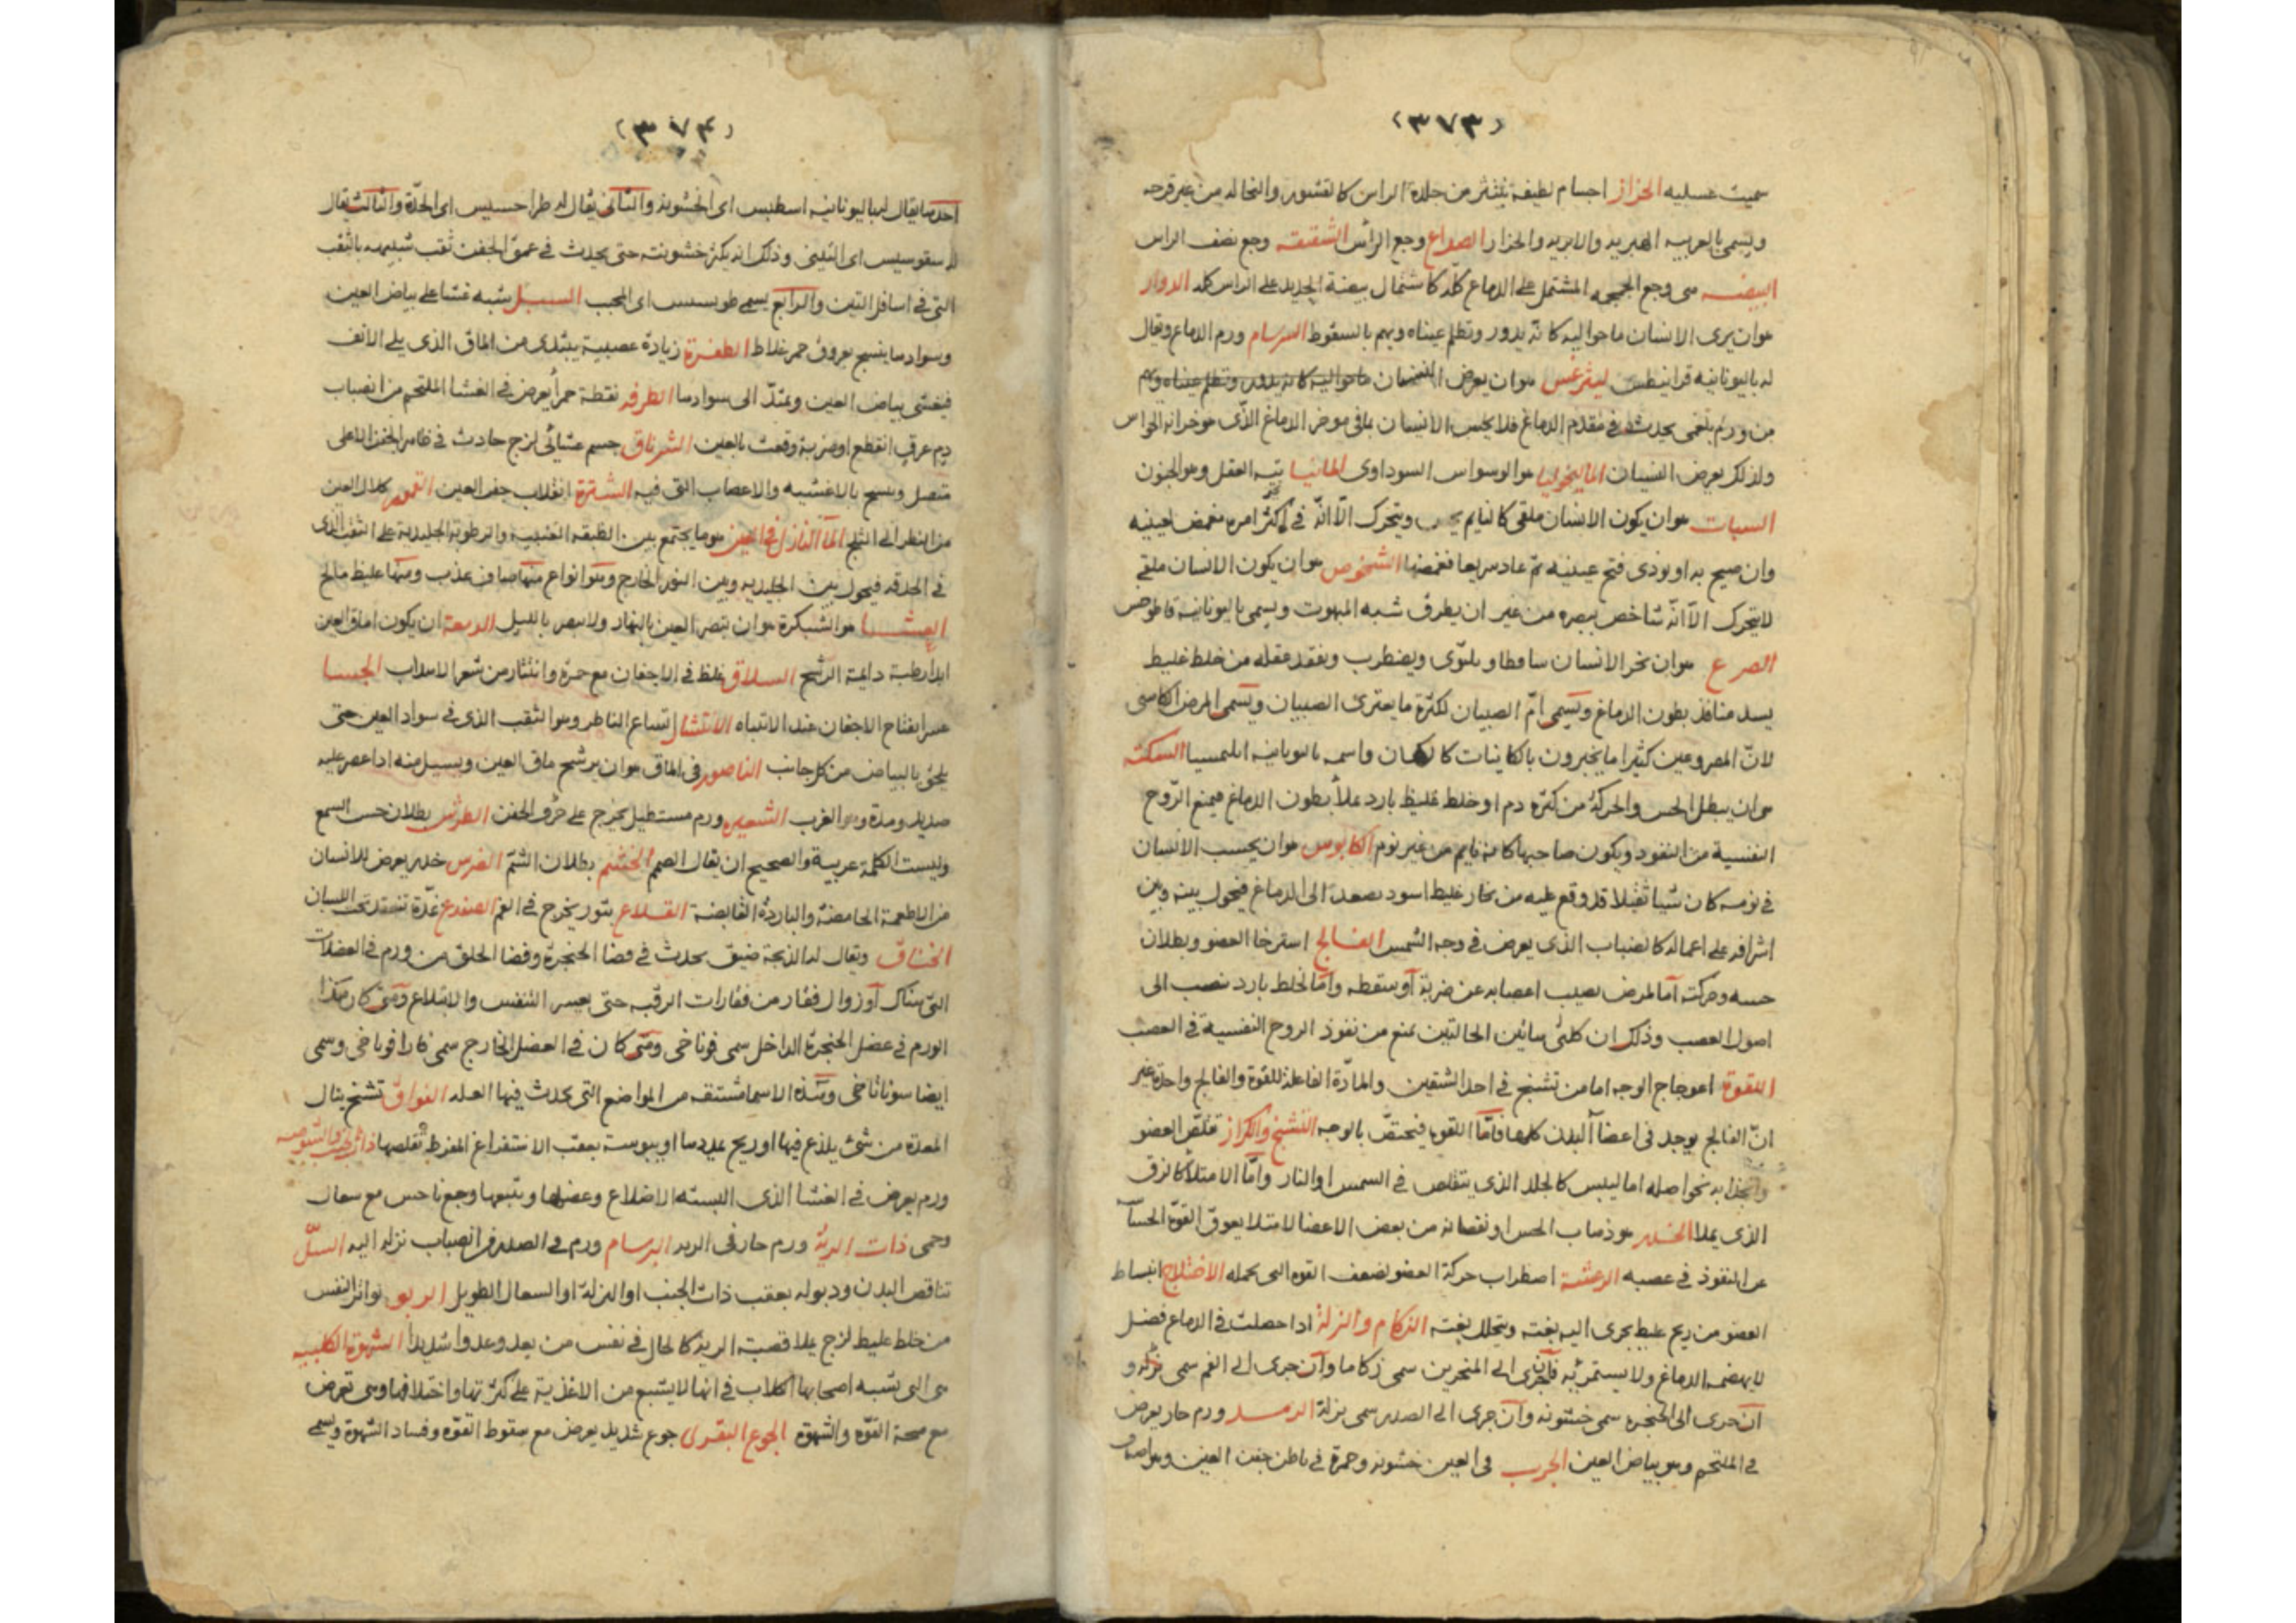 (٣٧٣)
سميت عسليه الحزاز اجسام لطيفة ينتثر من جلدة الراس كالقشور والنخاله من غير قرحه
ويسمى بالعربيه الهبريه والابريه والحزاز الصداع وجع الرأس الشقيقه وجع نصف الراس
البيضه هى وجع الجمجمه المشتمل على الدماغ كله كاشتمال بيضة الحديد على الراس كله الدوار
هو ان يرى الانسان ما حواليه كانّه يدور وتظلم عيناه ويهم بالسقوط السرسام ورم الدماغ ويقال
له باليونانيه قرانيطس ليثرغس هو ان يعرض النسيان ما حواليه كانه يدور وتظلم عيناه ويهم
من ورم بلغمى يحدث فى مقدم الدماغ فلا يحس الانسان باقى موخر الدماغ الذّى هو خزانه الحواس
ولذلك يعرض النسيان الماليخوليا هو الوسواس السوداوى المانيا تيه العقل وهو الجنون
السبات هو ان يكون الانسان ملقى كالنايم يحس ويتحرك الّا انّه فى اكثر امره مغمض لعينيه
وان صيح به او نودى فتح عينيه ثم عاد سريعا فغمضها الشخوص هو ان يكون الانسان ملقى
لا يتحرك الّا انّه شاخص ببصره من غير ان يطرف شبه المبهوت ويسمى باليونانية قاطوخس
الصرع هو ان يخر الانسان ساقطا ويلتوّى ويضطرب ويفقد عقله من خلط غليظ
يسد منافذ بطون الدماغ ويسمى امّ الصبيان لكثرة ما يعترى الصبيان ويسمى المرض الكاهنى
لانّ المصروعين كثيرا ما يخبرون بالكاينات كالكهان واسمه باليونانيه ابليمسيا السكته
هو ان يبطل الحس والحركة من كثرة دم او خلط غليظ بارد يملأ بطون الدماغ فيمنع الرّوح
النفسية من النفود ويكون صاحبها كانه نايم من غير نوم الكابوس هو ان يحسب الانسان
فى نومه كان شيا ثقيلا قد وقع عليه من بخار غليظ اسود يصعد الى الدماغ فيحول بينه وبين
اشرافه على اعماله كالضباب الذى يعرض فى وجه الشمس الفالج استرخا العضو وبطلان
حسه وحركته اما لمرض يصيب اعصابه عن ضربة او سقطه واما لخلط بارد ينصب الى
اصول العصب وذلك ان كلتى هاتين الحالتين تمنع من نفوذ الروح النفسية فى العصب
اللقوة اعوجاج الوجه اما من تشنج فى احد الشقين والمادّة الفاعلة للقوة والفالج واحدة غير
انّ الفالج يوجد فى اعضآ البدن كلها فامّا اللقوه فيختصّ بالوجه التشنج والكزاز تقلّص العضو
وانجذابه نحو اصله اما لييس كالجلد الذى يتقلص فى الشمس او النار وامّا الامتلأ كالزق
الذى يملا الخدر هو ذهاب الحس او نقصانه من بعض الاعضا لامتلا يعوق القوّة الحسّآ
عن النفوذ فى عصبه الرعشة اضطراب حركة العضو لضعف القوه التى تحمله الاختلاج انبساط
العضو من ريح غليظ يجرى اليه بغته ويتحلل بغته الزكام والنزلة اذا حصلت فى الدماغ فضل
لا يهضمه الدماغ ولا يستمريه فان جرى الى المنخرين سمى زكاما وان جرى الى الفم سمى نزله و
ان جرى الى الحنجره سمى خشونه وان جرى الى الصدر سمى نزلة الرمد ورم حار يعرض
فى الملتحم وهو بياض العين الجرب فى العين خشونه وحمرة فى باطن جفن العين وهو اصناف
(٣٧٤)
احدها يقال له باليونانيه اسطيس اى الخشونه والثانى يقال له طراحسيس اى الحدّة والثالث يقال
له سقوسيس اى التينى وذلك انه يكثر خشونته حتى يحدث فى عمق الجفن ثقب شبيهه بالثقب
التى فى اسافل التين والرابع يسمى طويسس اى المجب السبل شبه غشا على بياض العين
وسوادها ينسج بعروق حمر غلاظ الظفرة زيادة عصبية يبتدى من الماق الذى يلى الانف
فيغشى بياض العين ويمتدّ الى سوادها الطرفه نقطة حمرأ يعرض فى الغشا الملتحم من انصباب
دم عرقٍ انقطع او ضربة وقعت بالعين الشرناق جسم غشائى لزج حادث فى ظاهر الجفن الاعلى
متصل وينسج بالاغشيه والاعصاب التى فيه الشترة انقلاب جفن العين القمور كلال العين
من النظر الى الثلج المآ النازل فى العين هو ما يجتمع بين الطبقه العنبيه والرطوبة الجليدية على الثقب الذى
فى الحدقه فيحول بين الجليديه وبين النور الخارج وهو انواع منها صاف عذب ومنها غليظ مالح
العشا هو الشبكرة هو ان يبصر العين بالنهار ولا يبصر بالليل الدمعة ان يكون اماق العين
ابدا رطبة دايمة الرشح السلاق غلظ فى الاجفان مع حمرة وانتثار من شعر الاهداب الجسا
عسر انفتاح الاجفان عند الانتباه الانتشار اتساع الناظر وهو الثقب الذى فى سواد العين حتى
يلحق بالبياض من كل جانب الناصور فى الماق هو ان يرشح ماق العين ويسيل منه اذا عصر عليه
صديد ومدة وهو الغرب الشعيره ورم مستطيل يخرج على حرف الجفن الطرش بطلان حس السمع
وليست الكلمة عربية والصحيح ان يقال الصمم الخشم بطلان الشمّ الضرس خدر يعرض للانسان
من الاطعمة الحامضة والباردة القابضة القلاع بثور يخرج فى الفم الضفدع غدّة تنعقد تحت اللسان
الخناق ويقال له الذبحة ضيق يحدث فى فضا الحنجرة وفضا الحلق من ورم فى العضلات
التى هناك او زوال فقار من فقارات الرقبه حتى يعسر التنفس والابتلاع ومتى كان هذا
الورم فى عضل الحنجرة الداخل سمى فوناخى ومتى كان فى العضل الخارج سمى فارافوناخى وسمى
ايضا سوناناخى وهذه الاسما مشتقه من المواضع التى يحدث فيها العله الفواق تشنج ينال
المعدة من شئ يلذع فيها او ريح يمددها او يبوسة بعقب الاستفراغ المفرط تقلصها ذات الجنب والشوصه
ورم يعرض فى الغشا الذى البسته الاضلاع وعضلها ويتبعها وجع ناخس مع سعال
وحمى ذات الرئة ورم حار فى الريه البرسام ورم فى الصدر من انصباب نزله اليه السلّ
تناقص البدن وذبوله بعقب ذات الجنب او النزلة او السعال الطويل الربو تواتر النفس
من خلط غليظ لزج يملا قصبة الرية كالحال فى نفس من يعدو عدوا شديدا الشهوة الكلبيه
هى التى تشبه اصحابها الكلاب فى انها لا يشبع من الاغذية على كثرتها واختلافها وهى تعرض
مع صحة القوّه والشهوة الجوع البقرى جوع شديد يعرض مع سقوط القوّه وفساد الشهوة ويسمى